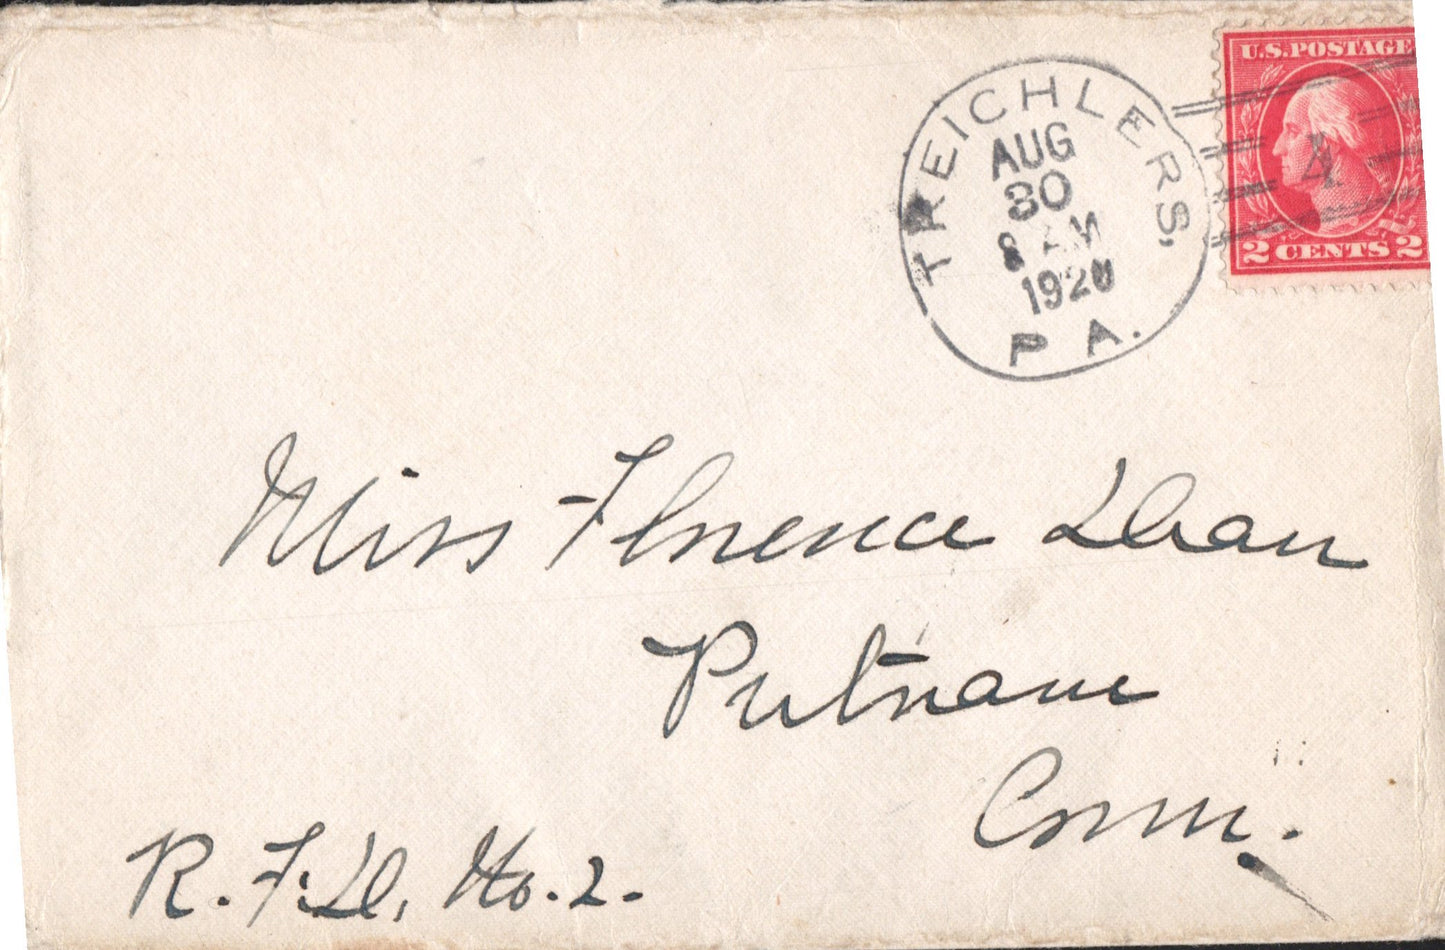 U.S. POSTAGE
2 CENTS 2
TREICHLERS,
AUG
30
8 AM
1920
PA.
4
Miss Florence Dean
Putnam
Conn.
R.F.D. No. 2.